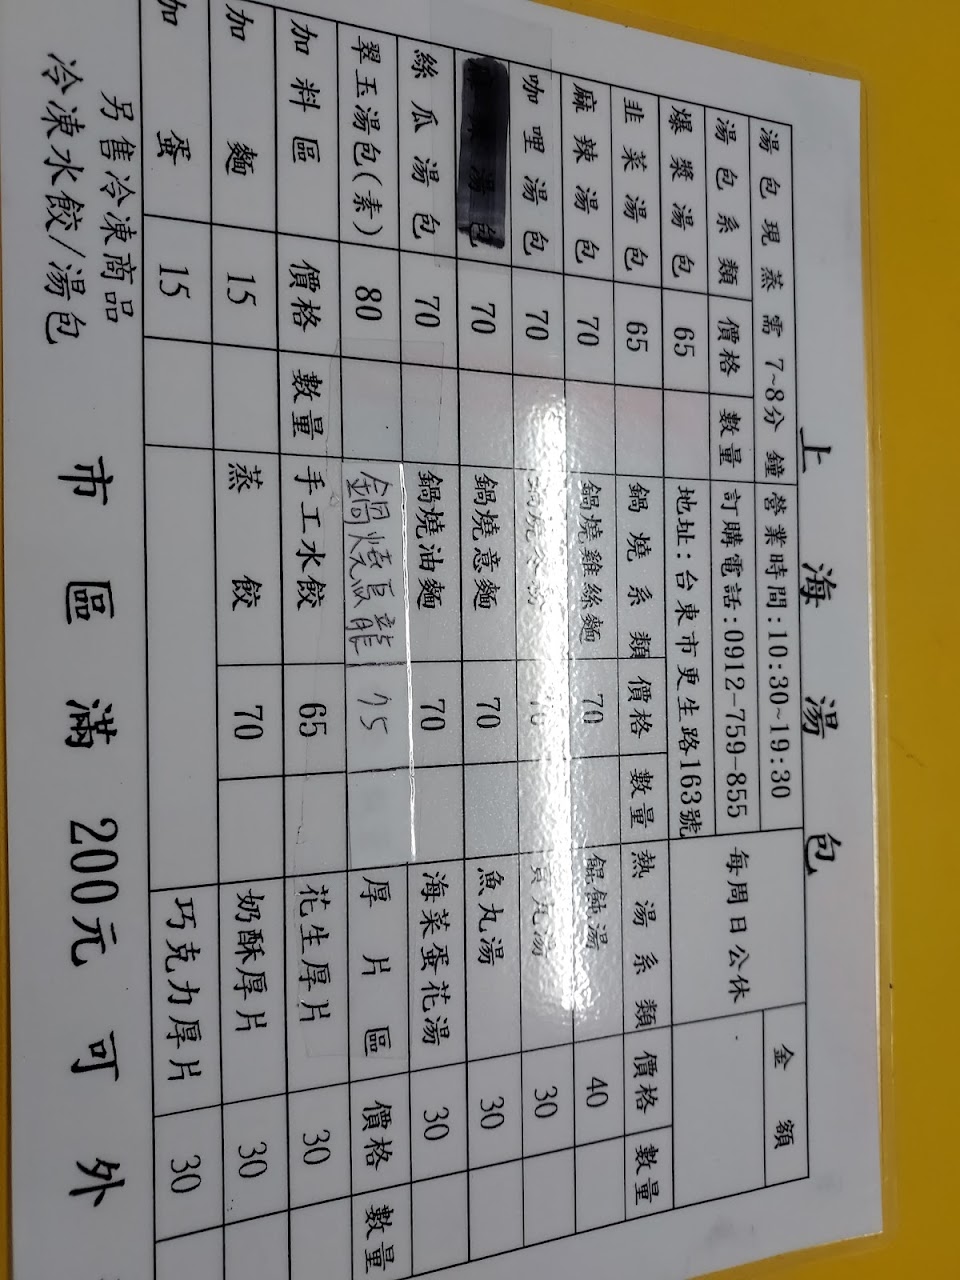 上海湯包
湯包現蒸需7~8分鐘 營業時間:10:30~19:30 金額
湯包系類 價格 數量 訂購電話:0912-759-855 每周日公休
爆漿湯包 65 地址:台東市更生路163號
韭菜湯包 65 鍋燒系類 價格 數量 熱湯系類 價格 數量
麻辣湯包 70 鍋燒雞絲麵 70 餛飩湯 40
咖哩湯包 70 鍋燒 70 丸湯 30
湯包 70 鍋燒意麵 70 魚丸湯 30
絲瓜湯包 70 鍋燒油麵 70 海菜蛋花湯 30
翠玉湯包(素) 80 鍋燒烏龍 75 厚片區 價格 數量
加料區 價格 數量 手工水餃 65 花生厚片 30
加麵 15 蒸餃 70 奶酥厚片 30
加蛋 15 巧克力厚片 30
另售冷凍商品
冷凍水餃/湯包 市區滿200元可外